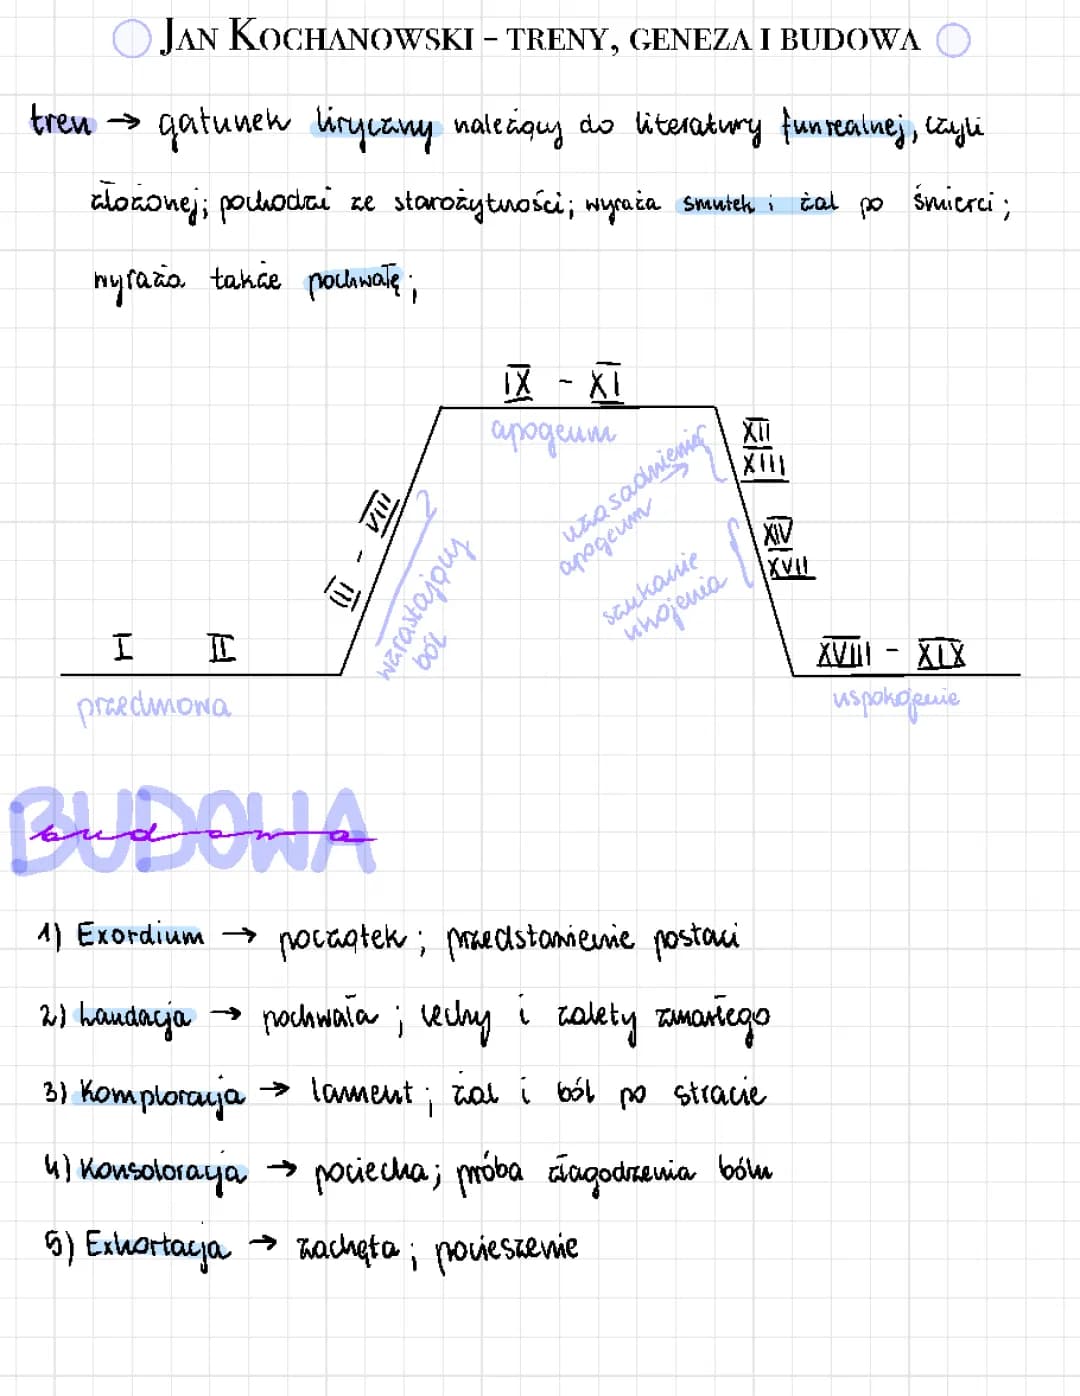 JAN KOCHANOWSKI - TRENY, GENEZA I BUDOWA
tren → gatunek liryczny należący do literatury funrealnej, czyli
złożonej; pochodzi ze starożytności; wyraża smutek i żal po śmierci;
wyraża także pochwałę;
IX - XI
apogeum
XII
XIII
uzasadnienia
apogeum
III - VIII
wzrastający
ból
XIV
XVII
szukanie
ukojenia
I II
przedmowa
XVIII - XIX
uspokojenie
BUDOWA
budowa
1) Exordium → początek; przedstawienie postaci
2) Laudacja → pochwała; cechy i zalety zmarłego
3) Komploracja → lament; żal i ból po stracie
4) Konsoloracja → pociecha; próba złagodzenia bólu
5) Exhortacja → zachęta; pocieszenie